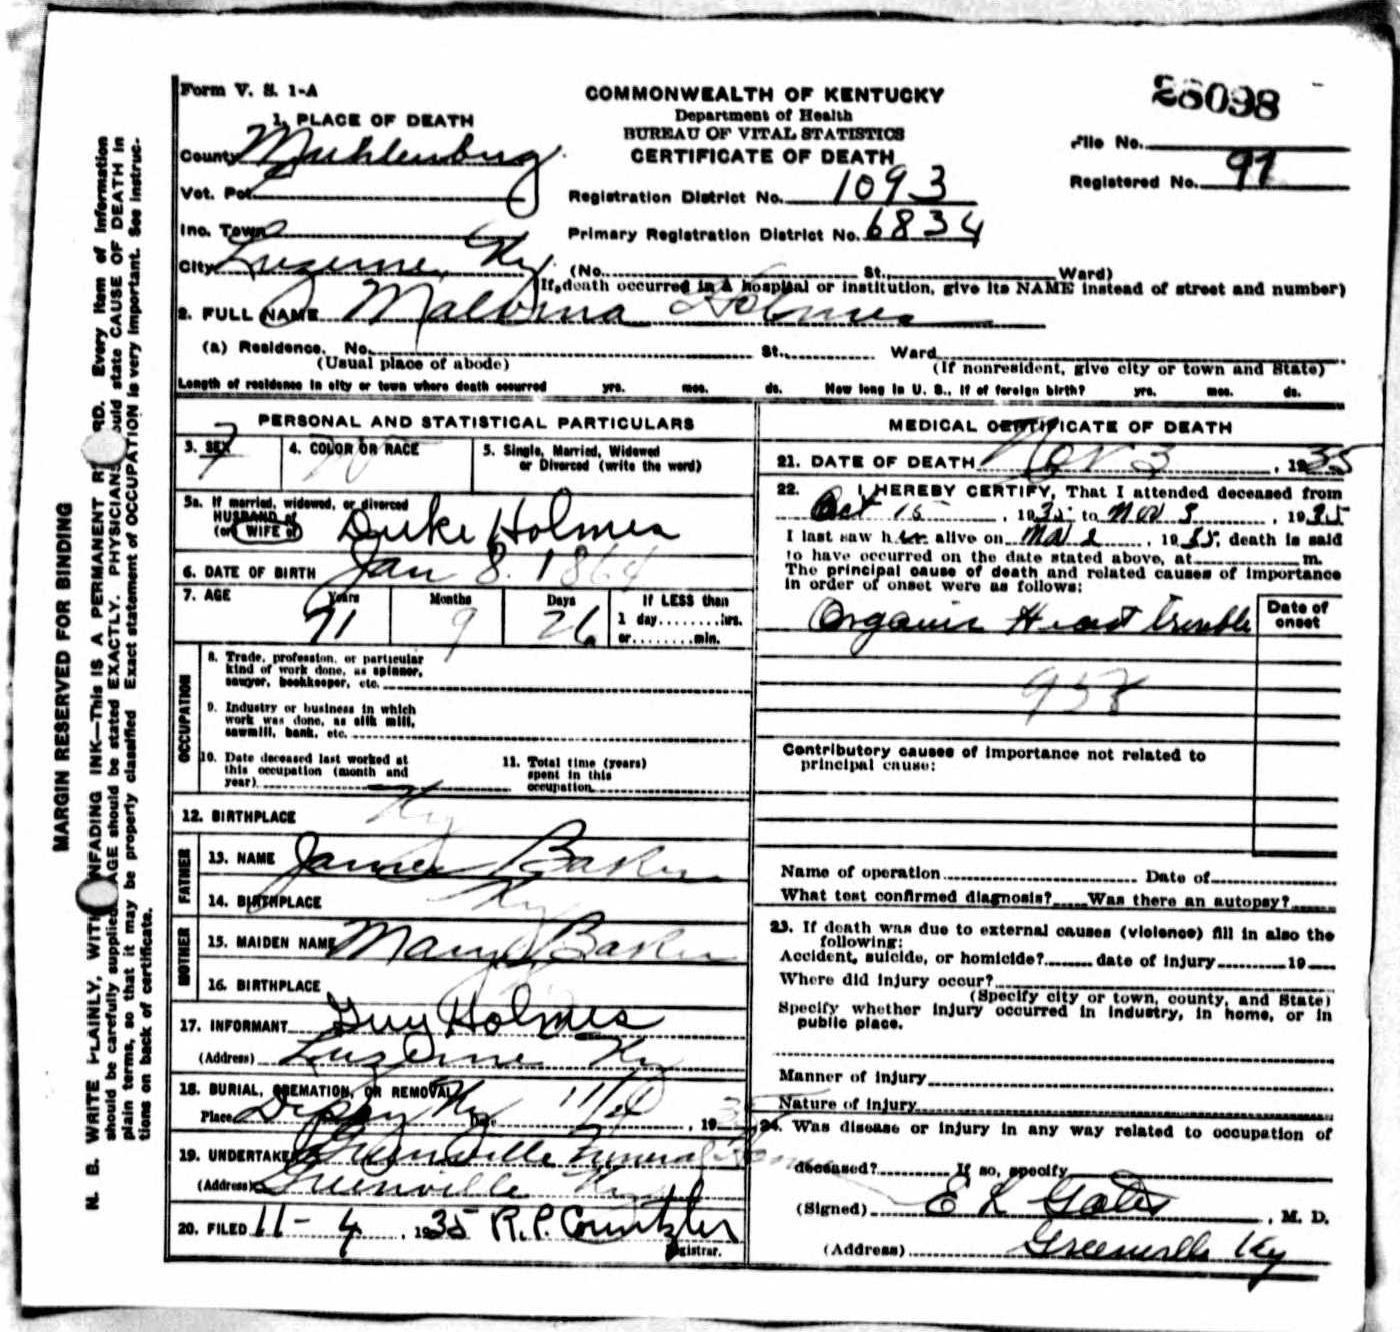 Form V. S. 1-A
COMMONWEALTH OF KENTUCKY
Department of Health
BUREAU OF VITAL STATISTICS
CERTIFICATE OF DEATH
28098
File No.
Registered No. 97
1. PLACE OF DEATH
County Muhlenburg
Vot. Pct.
Inc. Town
City Luzerne, Ky.
Registration District No. 1093
Primary Registration District No. 6834
(No. St., Ward)
(If death occurred in a hospital or institution, give its NAME instead of street and number)
2. FULL NAME Malvina Holmes
(a) Residence. No. St., Ward
(Usual place of abode) (If nonresident, give city or town and State)
Length of residence in city or town where death occurred yrs. mos. ds. How long in U. S., if of foreign birth? yrs. mos. ds.
PERSONAL AND STATISTICAL PARTICULARS
3. SEX F 4. COLOR OR RACE W 5. Single, Married, Widowed
or Divorced (write the word)
5a. If married, widowed, or divorced
HUSBAND of
(or) WIFE of Duke Holmes
6. DATE OF BIRTH Jan 8. 1864
7. AGE Years Months Days If LESS than
71 9 26 1 day........hrs.
or........min.
OCCUPATION
8. Trade, profession, or particular
kind of work done, as spinner,
sawyer, bookkeeper, etc.
9. Industry or business in which
work was done, as silk mill,
sawmill, bank, etc.
10. Date deceased last worked at
this occupation (month and
year)
11. Total time (years)
spent in this
occupation
12. BIRTHPLACE Ky
FATHER
13. NAME James Baker
14. BIRTHPLACE Ky
MOTHER
15. MAIDEN NAME Mary Baker
16. BIRTHPLACE
17. INFORMANT Guy Holmes
(Address) Luzerne Ky
18. BURIAL, CREMATION, OR REMOVAL
Place Ky Date 11/4, 1935
19. UNDERTAKER Greenville Funeral Home
(Address) Greenville Ky
20. FILED 11-4, 1935 R.P. Countzler
Registrar.
MEDICAL CERTIFICATE OF DEATH
21. DATE OF DEATH Nov 3, 1935
22. I HEREBY CERTIFY, That I attended deceased from
Oct 15, 1935 to Nov 3, 1935
I last saw her alive on 2, 1935, death is said
to have occurred on the date stated above, at m.
The principal cause of death and related causes of importance
in order of onset were as follows:
Date of
onset
Organic Heart trouble
95
Contributory causes of importance not related to
principal cause:
Name of operation Date of
What test confirmed diagnosis? Was there an autopsy?
23. If death was due to external causes (violence) fill in also the
following:
Accident, suicide, or homicide? date of injury 19
Where did injury occur?
(Specify city or town, county, and State)
Specify whether injury occurred in industry, in home, or in
public place.
Manner of injury
Nature of injury
24. Was disease or injury in any way related to occupation of
deceased? If so, specify
(Signed) E L Gates, M. D.
(Address) Greenville Ky
MARGIN RESERVED FOR BINDING
N. B. WRITE PLAINLY, WITH UNFADING INK—This IS A PERMANENT RECORD. Every item of information
should be carefully supplied. AGE should be stated EXACTLY. PHYSICIANS should state CAUSE OF DEATH in
plain terms, so that it may be properly classified. Exact statement of OCCUPATION is very important. See instruc-
tions on back of certificate.